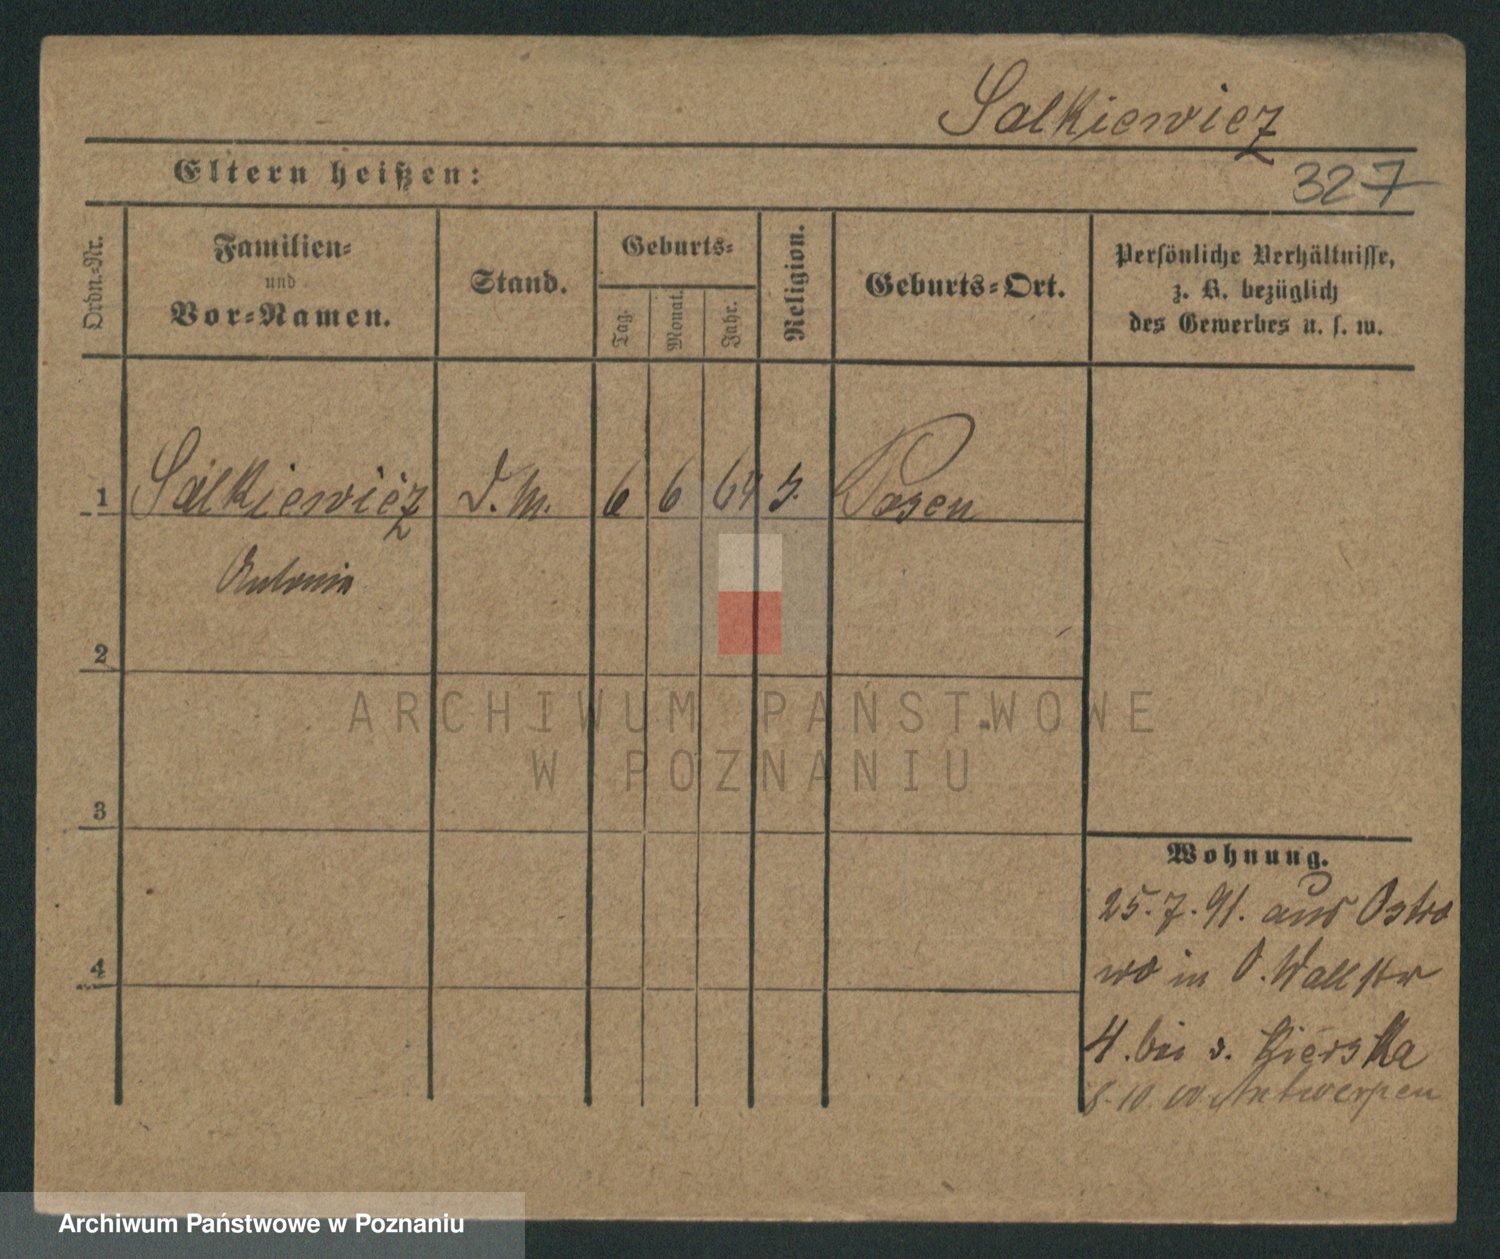 Salkiewicz
Eltern heißen:
327
Ordn.-Nr.
Familien-
und
Vor-Namen.
Stand.
Geburts-
Tag.
Monat.
Jahr.
Religion.
Geburts-Ort.
Persönliche Verhältnisse,
z. B. bezüglich
des Gewerbes u. s. w.
1 Salkiewicz D. M. 6 6 64 Posen
Antonia
2
3
4
Wohnung.
25.7.91. aus Ostro
wo in O. Wallstr
4. bei
8.10. Antwerpen
ARCHIWUM PAŃSTWOWE
W POZNANIU
Archiwum Państwowe w Poznaniu